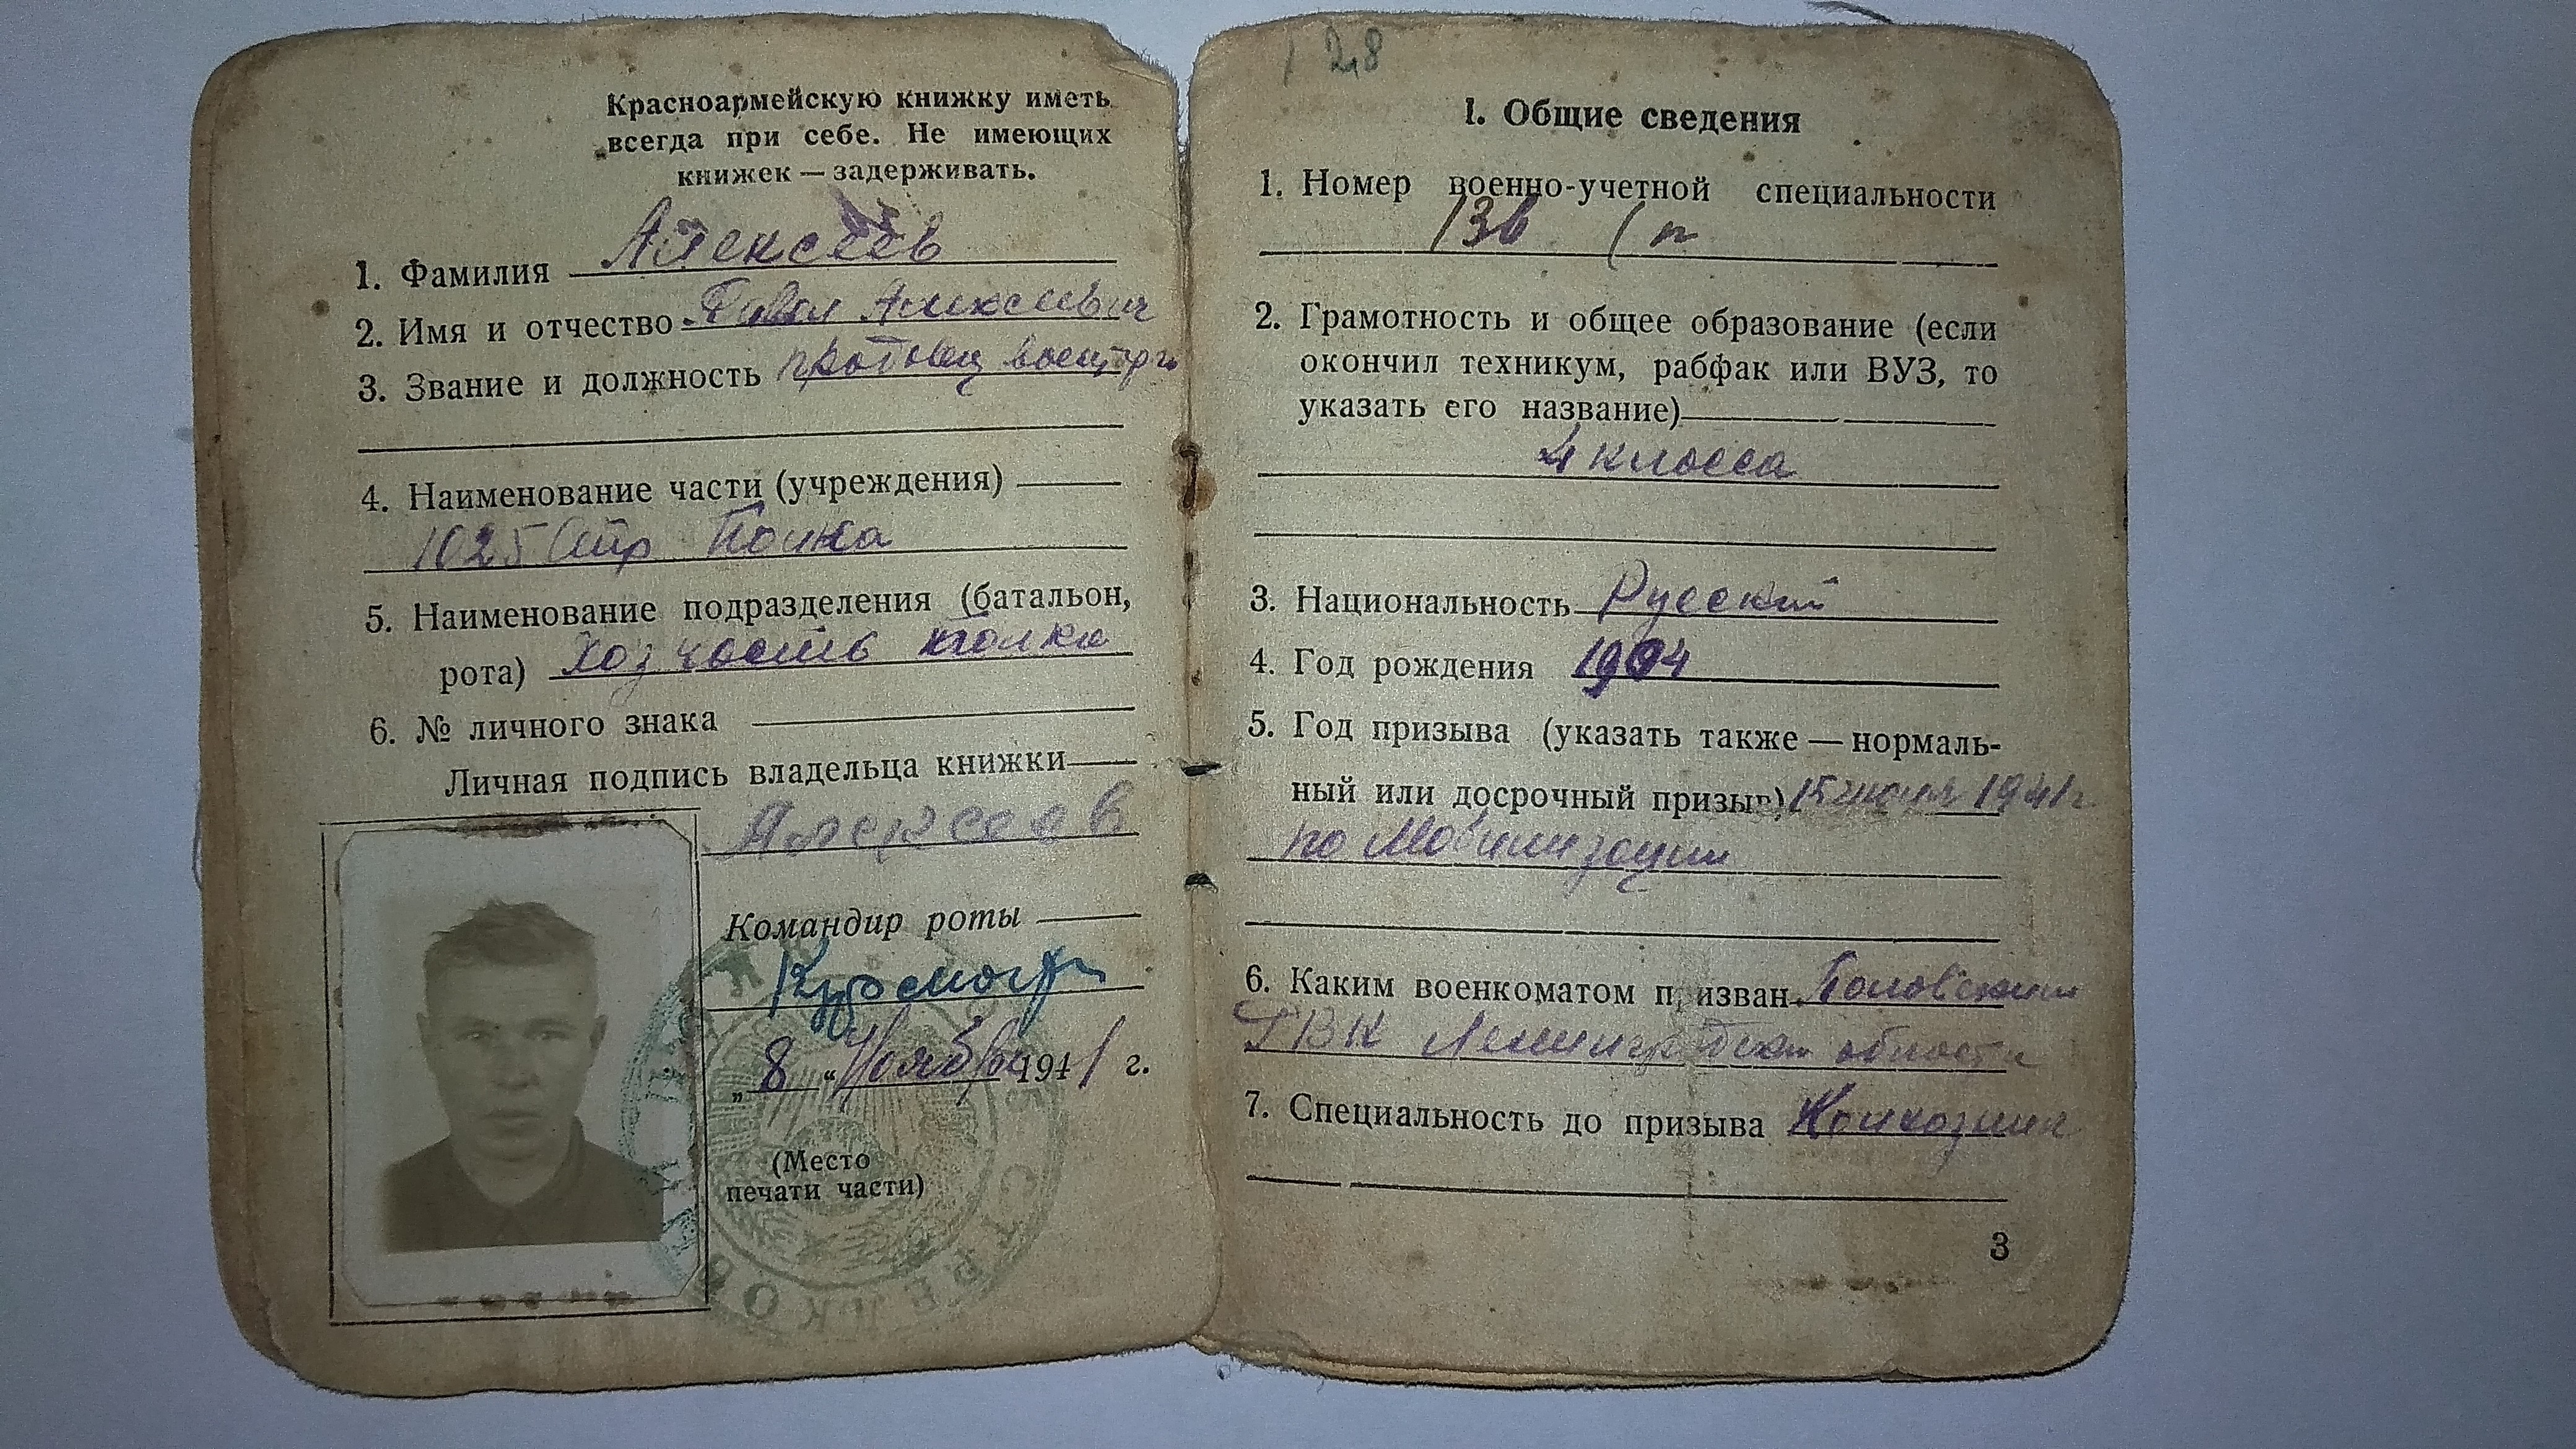 Красноармейскую книжку иметь
всегда при себе. Не имеющих
книжек — задерживать.
1. Фамилия Алексеев
2. Имя и отчество Павел Алексеевич
3. Звание и должность
4. Наименование части (учреждения)
1025 Стр Полка
5. Наименование подразделения (батальон,
рота) Хоз часть полка
6. № личного знака
Личная подпись владельца книжки
Алексеев
Командир роты
„ 8 “ Ноября 1941 г.
(Место
печати части)
128
I. Общие сведения
1. Номер военно-учетной специальности
2. Грамотность и общее образование (если
окончил техникум, рабфак или ВУЗ, то
указать его название)
4 класса
3. Национальность Русский
4. Год рождения 1904
5. Год призыва (указать также — нормаль-
ный или досрочный призыв) 1941г
по Мобилизации
6. Каким военкоматом призван
РВК Ленинградской области
7. Специальность до призыва Колхозник
3